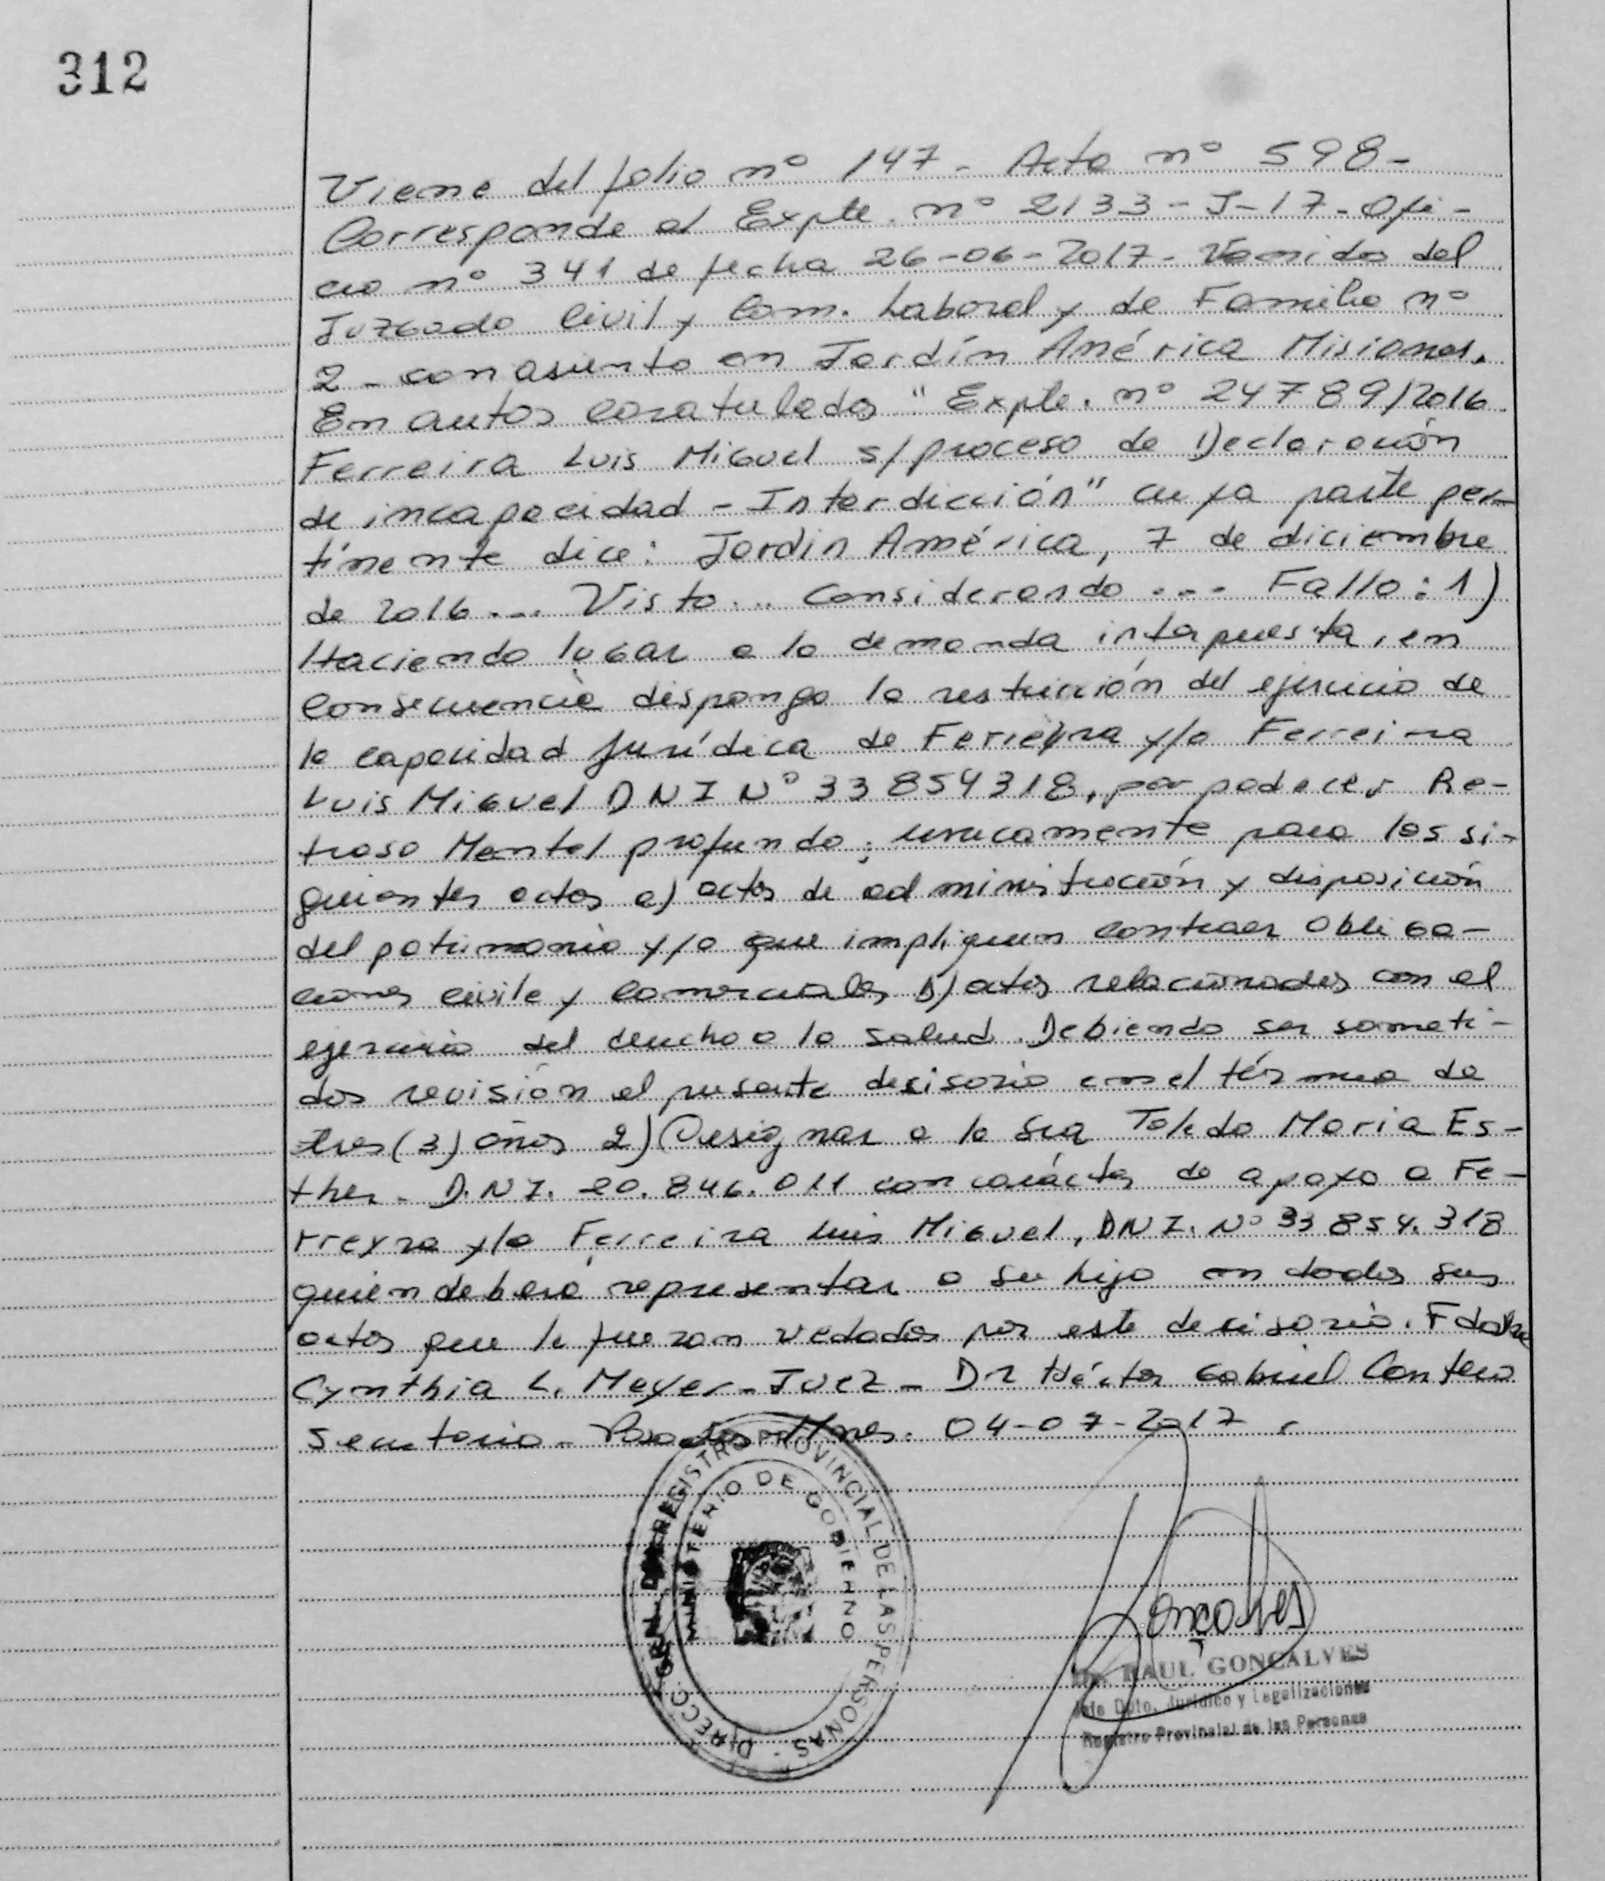 312
Viene del folio nº 147 - Acta nº 598 -
Corresponde al Expte. nº 2133 - J - 17 - Ofi-
cio nº 341 de fecha 26-06-2017 - Venido del
Juzgado Civil y Com. Laboral y de Familia nº
2 - con asiento en Jardín América Misiones.
En autos caratulados "Expte. nº 24789/2016
Ferreira Luis Miguel s/proceso de Declaración
de incapacidad - Interdicción" cuya parte per-
tinente dice: Jardin América, 7 de diciembre
de 2016... Visto... Considerando... Fallo: 1)
Haciendo lugar a la demanda interpuesta, en
consecuencia dispongo la restricción del ejercicio de
la capacidad jurídica de Ferreyra y/o Ferreira
Luis Miguel DNI Nº 33854318, por padecer Re-
traso Mental profundo; unicamente para los si-
guientes actos a) actos de administración y disposición
del patrimonio y/o que impliquen contraer obliga-
ciones civile y comerciales b) actos relacionados con el
ejercicio del derecho a la salud. Debiendo ser someti-
dos revisión el presente decisorio en el término de
tres (3) años 2) Designar a la Sra Toledo Maria Es-
ther - D.N.I. 20.846.011 con carácter de apoyo a Fe-
rreyra y/o Ferreira Luis Miguel, DNI. Nº 33854.318
quien deberá representar a su hijo en todos sus
actos que le fueran vedados por este decisorio. Fdo Dra
Cynthia L. Meyer - Juez - Dr Héctor Gabriel Cantero
Secretario - Posadas - Mnes. 04-07-2017
DIRECC. GRAL. DEL REGISTRO PROVINCIAL DE LAS PERSONAS -
MINISTERIO DE GOBIERNO
Gonçalves
Dr. RAUL GONCALVES
Jefe Dpto. Jurídico y Legalizaciones
Registro Provincial de las Personas